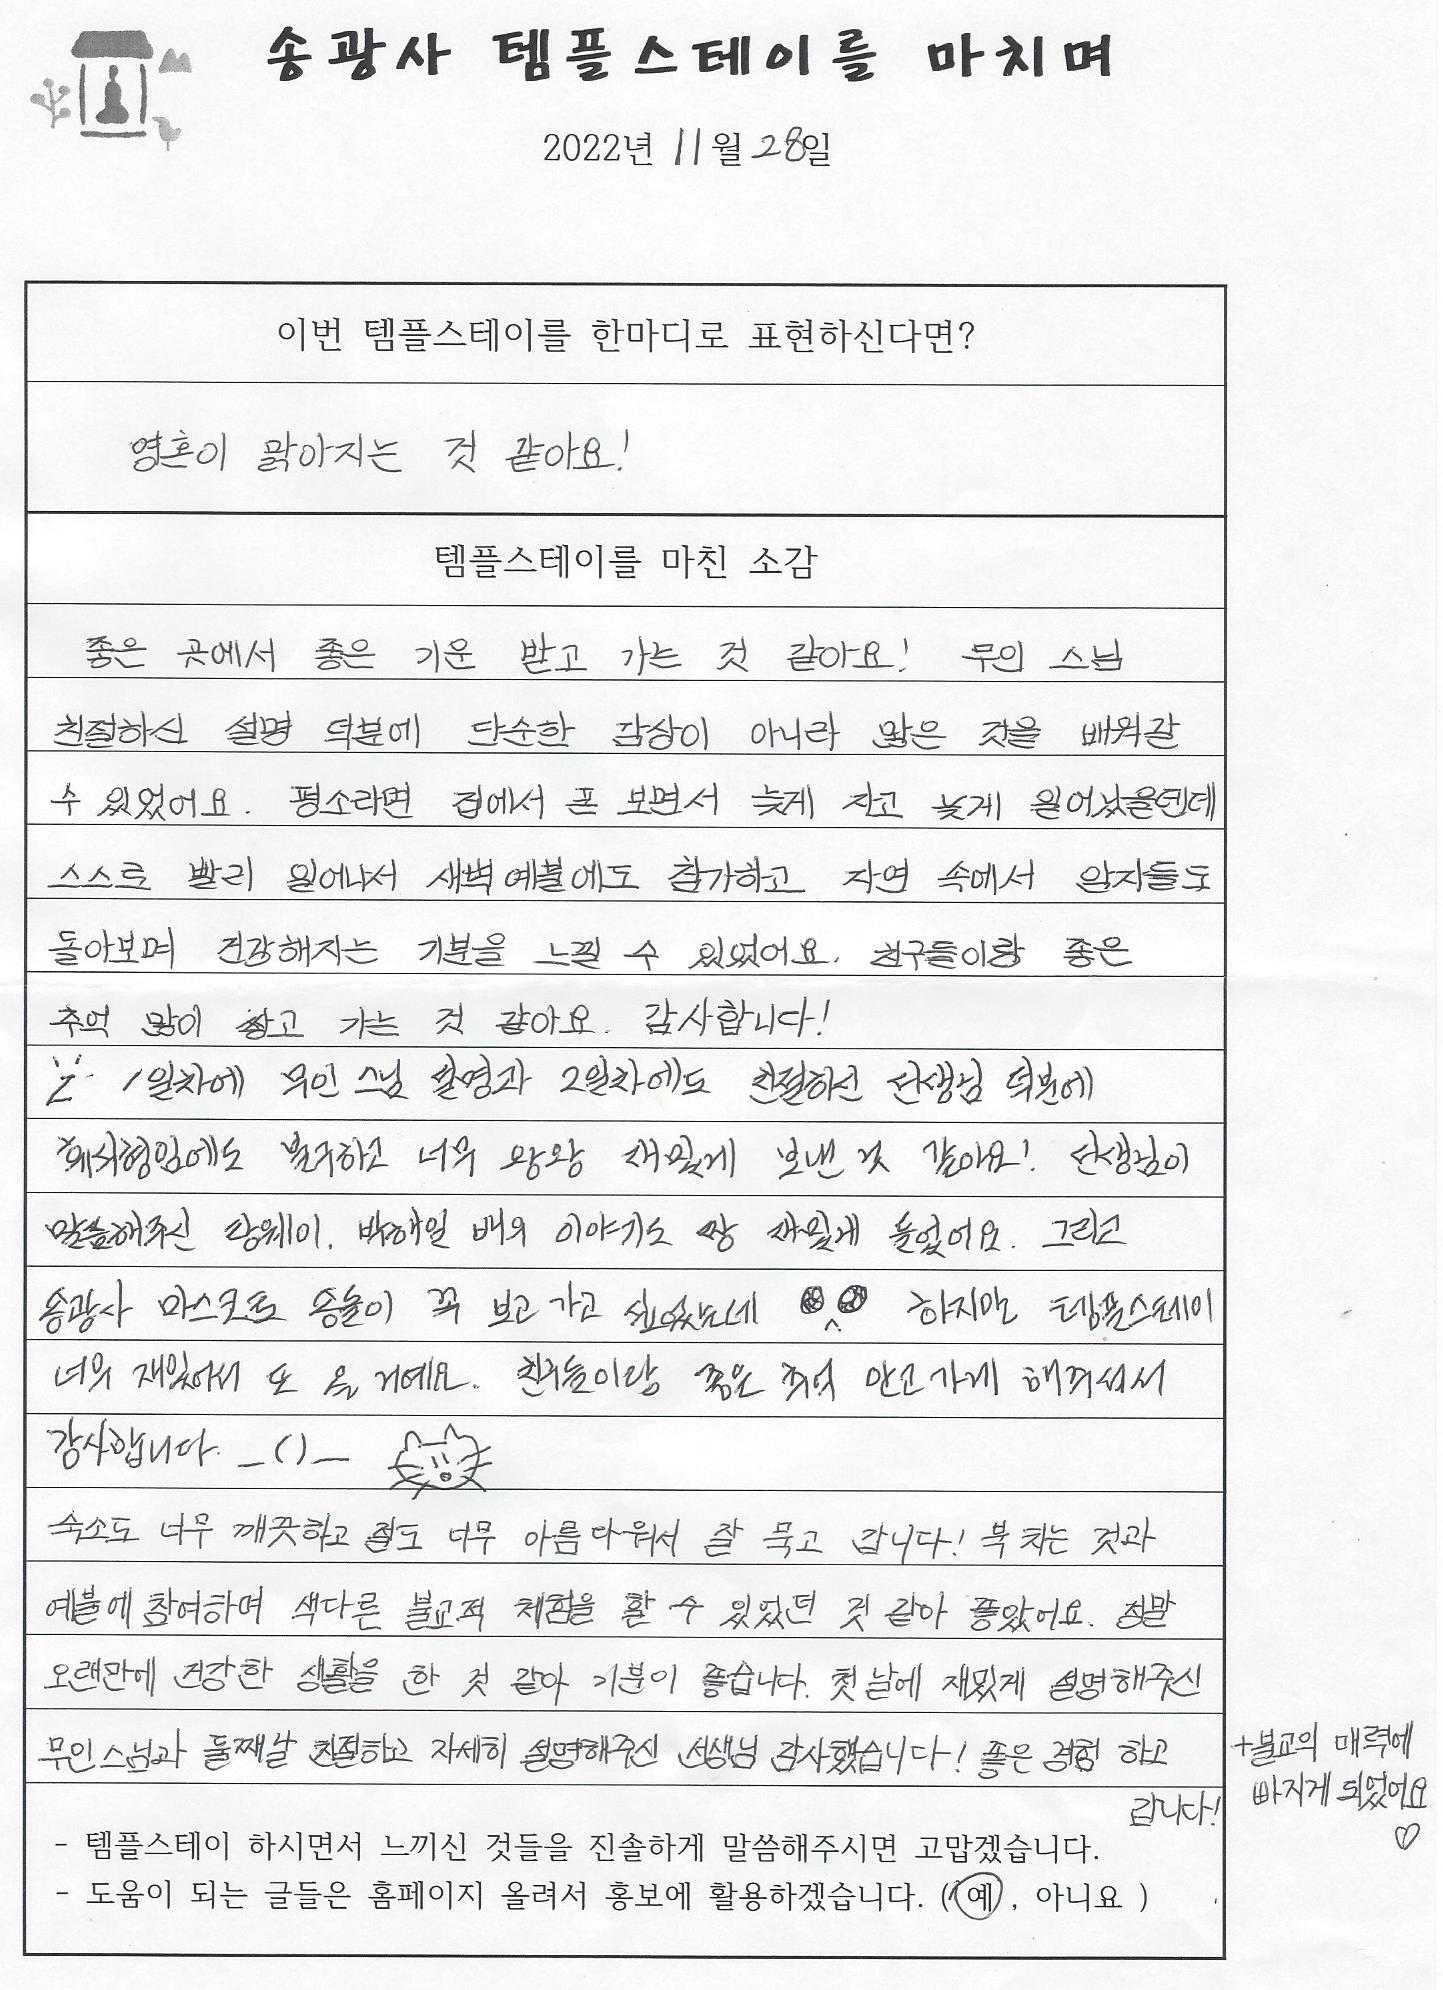 송광사 템플스테이를 마치며
2022년 11월 28일
이번 템플스테이를 한마디로 표현하신다면?
영혼이 맑아지는 것 같아요!
템플스테이를 마친 소감
좋은 곳에서 좋은 기운 받고 가는 것 같아요! 무인 스님
친절하신 설명 덕분에 단순한 감상이 아니라 많은 것을 배워갈
수 있었어요. 평소라면 집에서 폰 보면서 늦게 자고 늦게 일어났을텐데
스스로 빨리 일어나서 새벽예불에도 참가하고 자연 속에서 암자들도
돌아보며 건강해지는 기분을 느낄 수 있었어요. 친구들이랑 좋은
추억 많이 쌓고 가는 것 같아요. 감사합니다!
1일차에 무인 스님 설명과 2일차에도 친절하신 선생님 덕분에
휴식형임에도 불구하고 너무 왕왕 재밌게 보낸 것 같아요! 선생님이
말씀해주신 탕웨이, 박해일 배우 이야기도 짱 재밌게 들었어요. 그리고
송광사 마스코트 송놀이 꼭 보고 가고 싶었는데 하지만 템플스테이
너무 재밌어서 또 올 거예요. 친구들이랑 좋은 추억 안고가게 해주셔서
감사합니다. _( )_
숙소도 너무 깨끗하고 절도 너무 아름다워서 잘 묵고 갑니다! 북 치는 것과
예불에 참여하며 색다른 불교적 체험을 할 수 있었던 것 같아 좋았어요. 정말
오랜만에 건강한 생활을 한 것 같아 기분이 좋습니다. 첫날에 재밌게 설명해주신
무인스님과 둘째날 친절하고 자세히 설명해주신 선생님 감사했습니다! 좋은 경험 하고
갑니다!
+불교의 매력에
빠지게 되었어요
♡
- 템플스테이 하시면서 느끼신 것들을 진솔하게 말씀해주시면 고맙겠습니다.
- 도움이 되는 글들은 홈페이지 올려서 홍보에 활용하겠습니다. ( 예 , 아니요 )